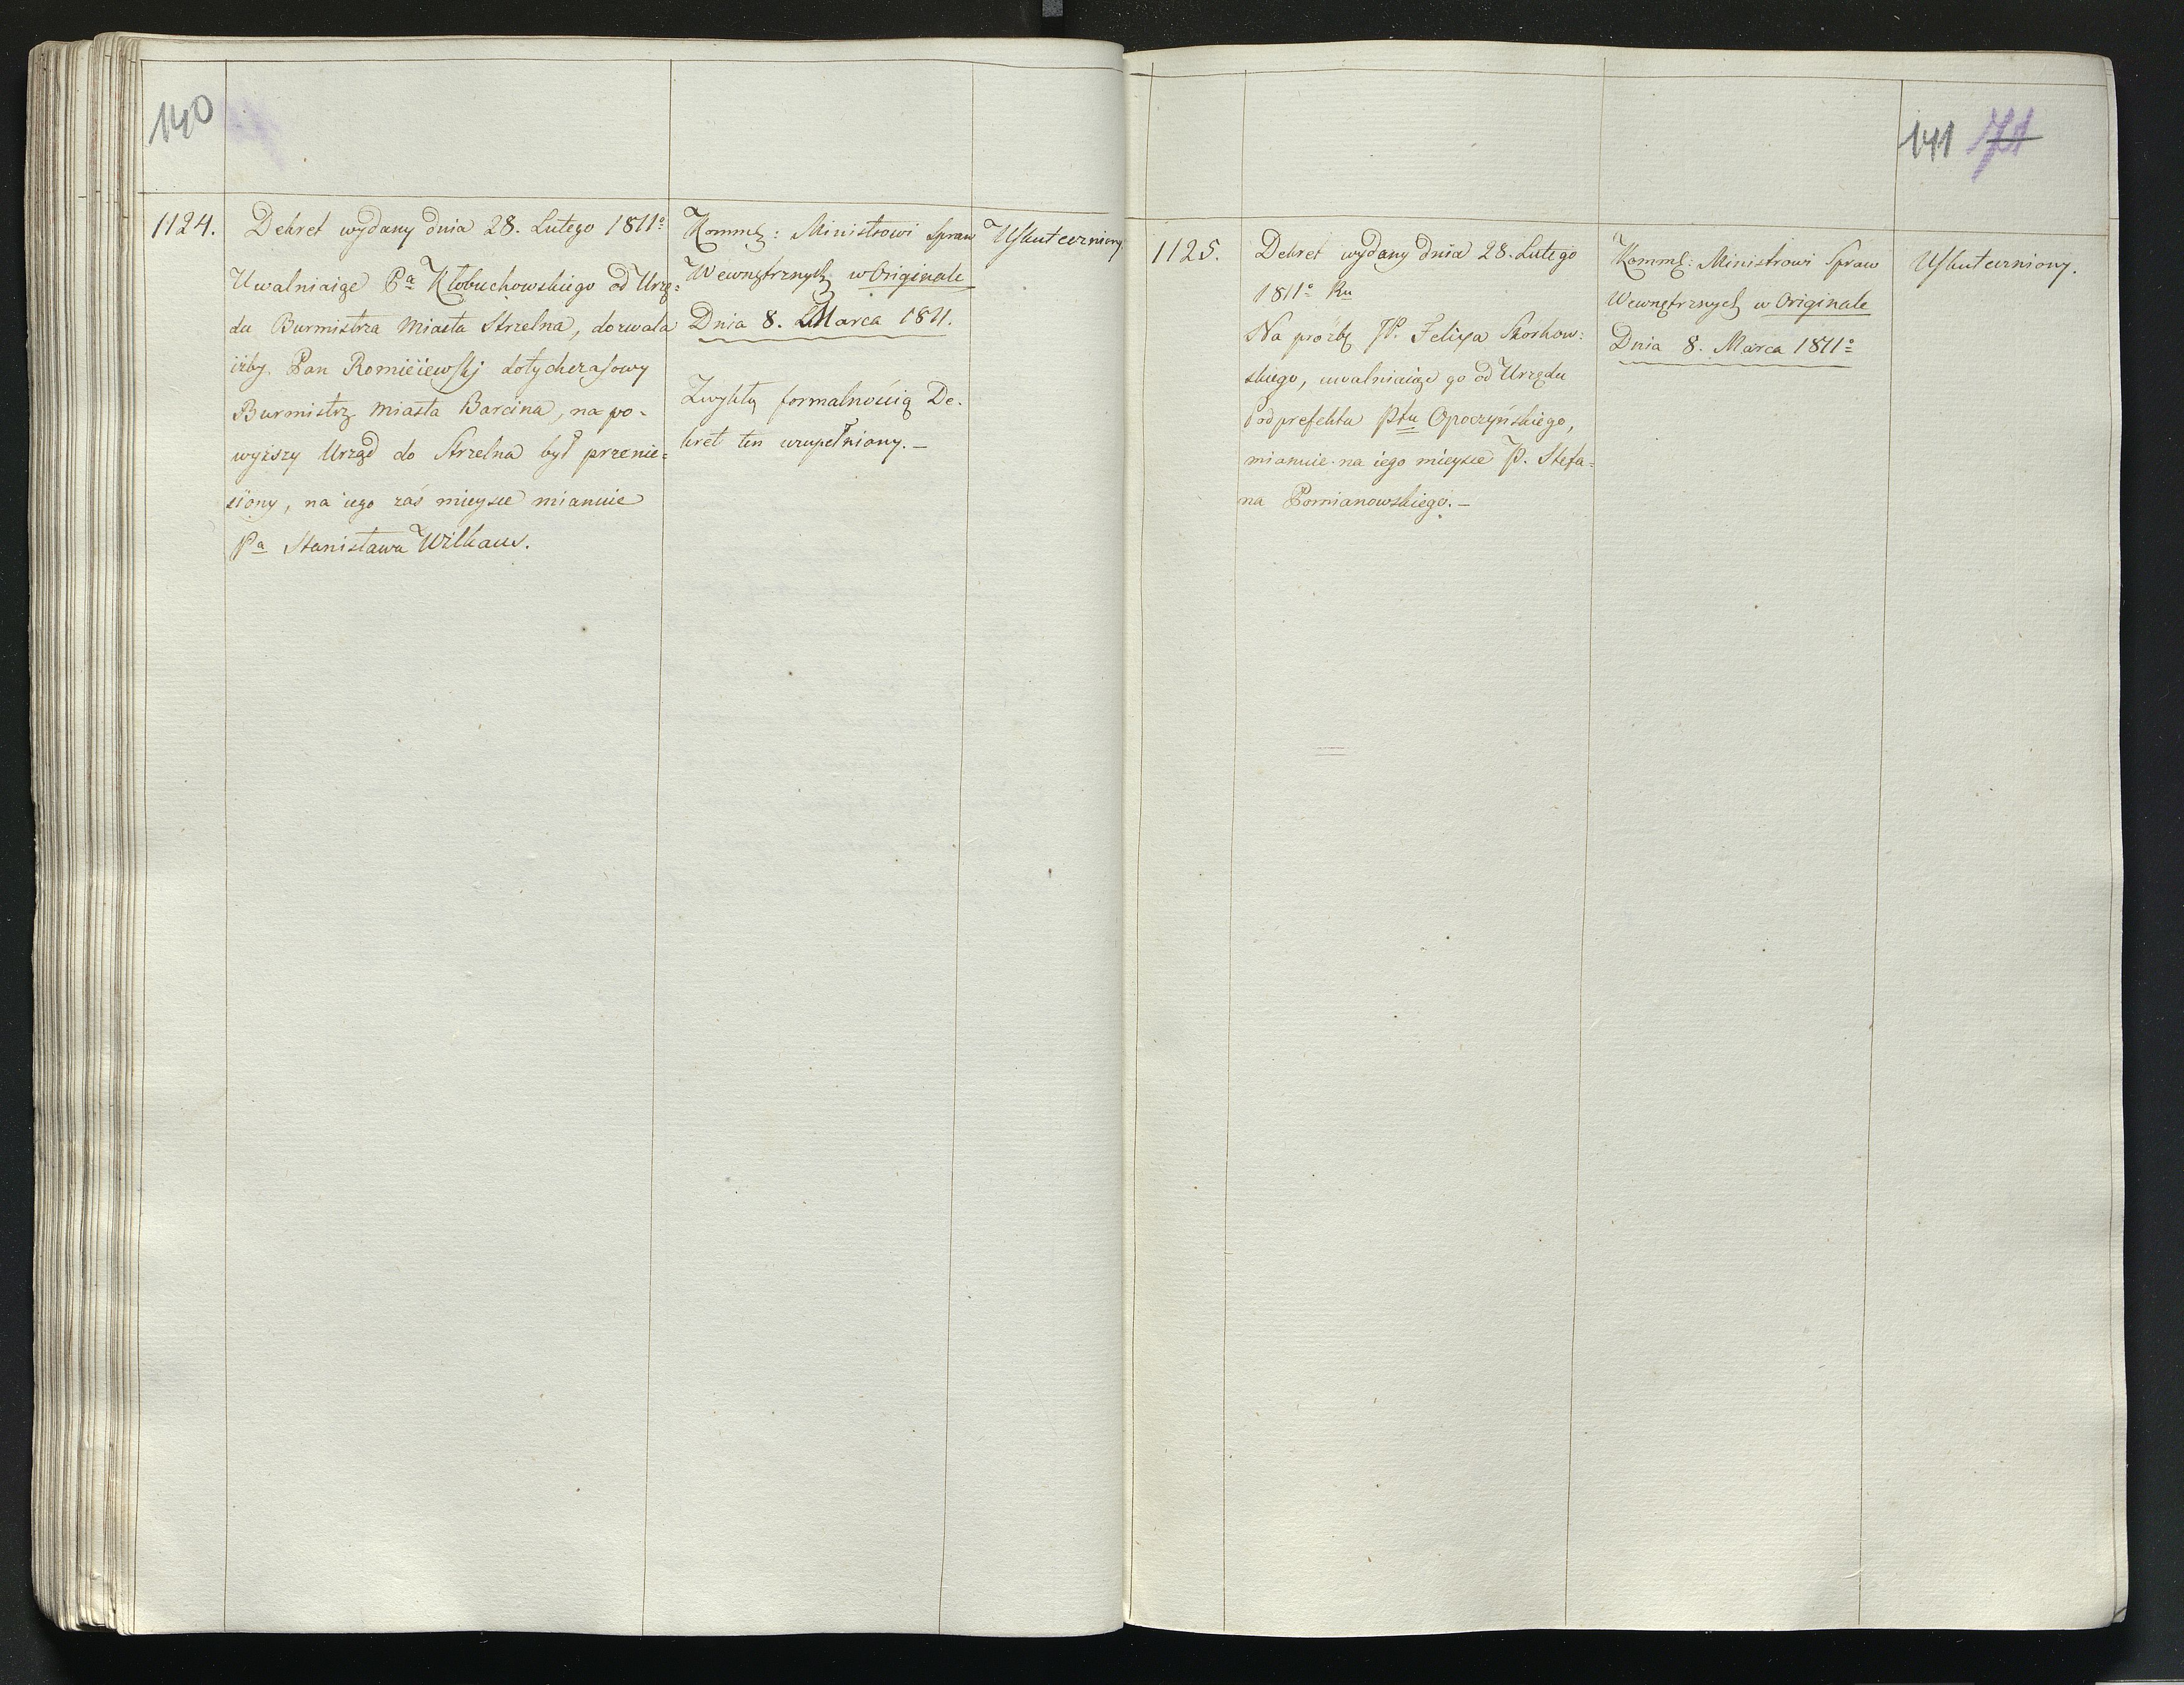 140
1124.
Dekret wydany dnia 28. Lutego 1811º
Uwalniaiąc Pª Kłobuchowskiego od Urzę=
du Burmistrza Miasta Strzelna, dozwala
iżby Pan Romieiewskj dotychczasowy
Burmistrz Miasta Barcina, na po-
wyższy Urząd do Strzelna był przenie=
siony, na iego zaś mieysce mianuie
Pª Stanisława Wilkaus.
Kommk: Ministrowi Spraw
Wewnętrznych w Originale
Dnia 8. Marca 1811.
Zwykłą formalnością De-
kret ten uzupełniony.—
Uskuteczniony.
141 71
1125.
Dekret wydany dnia 28. Lutego
1811º Ru
Na prożbę JP. Felixa Skorkow:
skiego, uwalniaiąc go od Urzędu
Podprefekta Ptu Opoczyńskiego,
mianuie na iego mieysce P. Stefa=
na Pomianowskiego.—
Kommk: Ministrowi Spraw
Wewnętrznych w Originale
Dnia 8. Marca 1811º
Uskuteczniony.